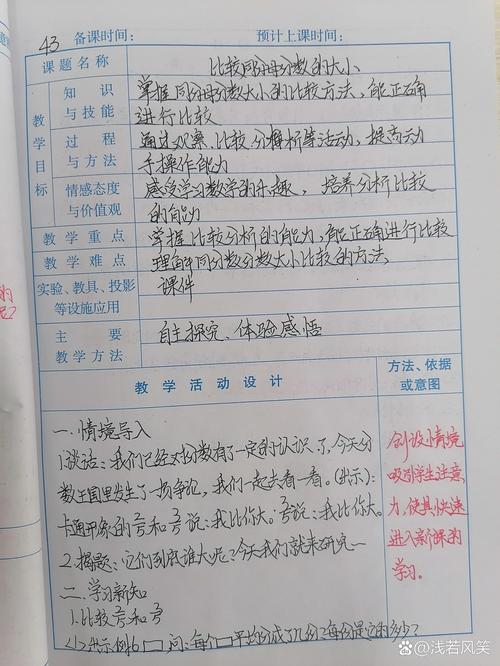 43 备课时间： 预计上课时间：
课题名称 比较同分母分数的大小
教学目标
知识与技能 掌握同分母分数大小的比较方法，能正确
进行比较
过程与方法 通过观察、比较分析等活动，提高动
手操作能力
情感态度与价值观 感受学习数学的乐趣，培养分析比较
的能力
教学重点 掌握比较分析的能力，能正确进行比较
教学难点 理解同分数分数大小比较的方法
实验、教具、投影等设施应用 课件
主要教学方法 自主探究、体验感悟
教学活动设计
方法、依据
或意图
一.情境导入
1.谈话：我们已经对分数有了一定的认识了，今天分
数王国里发生了一场争论，我们一起去看一看。(出示)：
卡通形象的 和 说：我比你大。 说：我比你大。
2.揭题：它们到底谁大呢？今天我们就来研究
二.学习新知
1.比较 和
出示例6 问：每个 平均分成了几份？每份是它的多少？
创设情境
吸引学生注意
力，使其快速
进入新课的
学习。
@浅若风笑